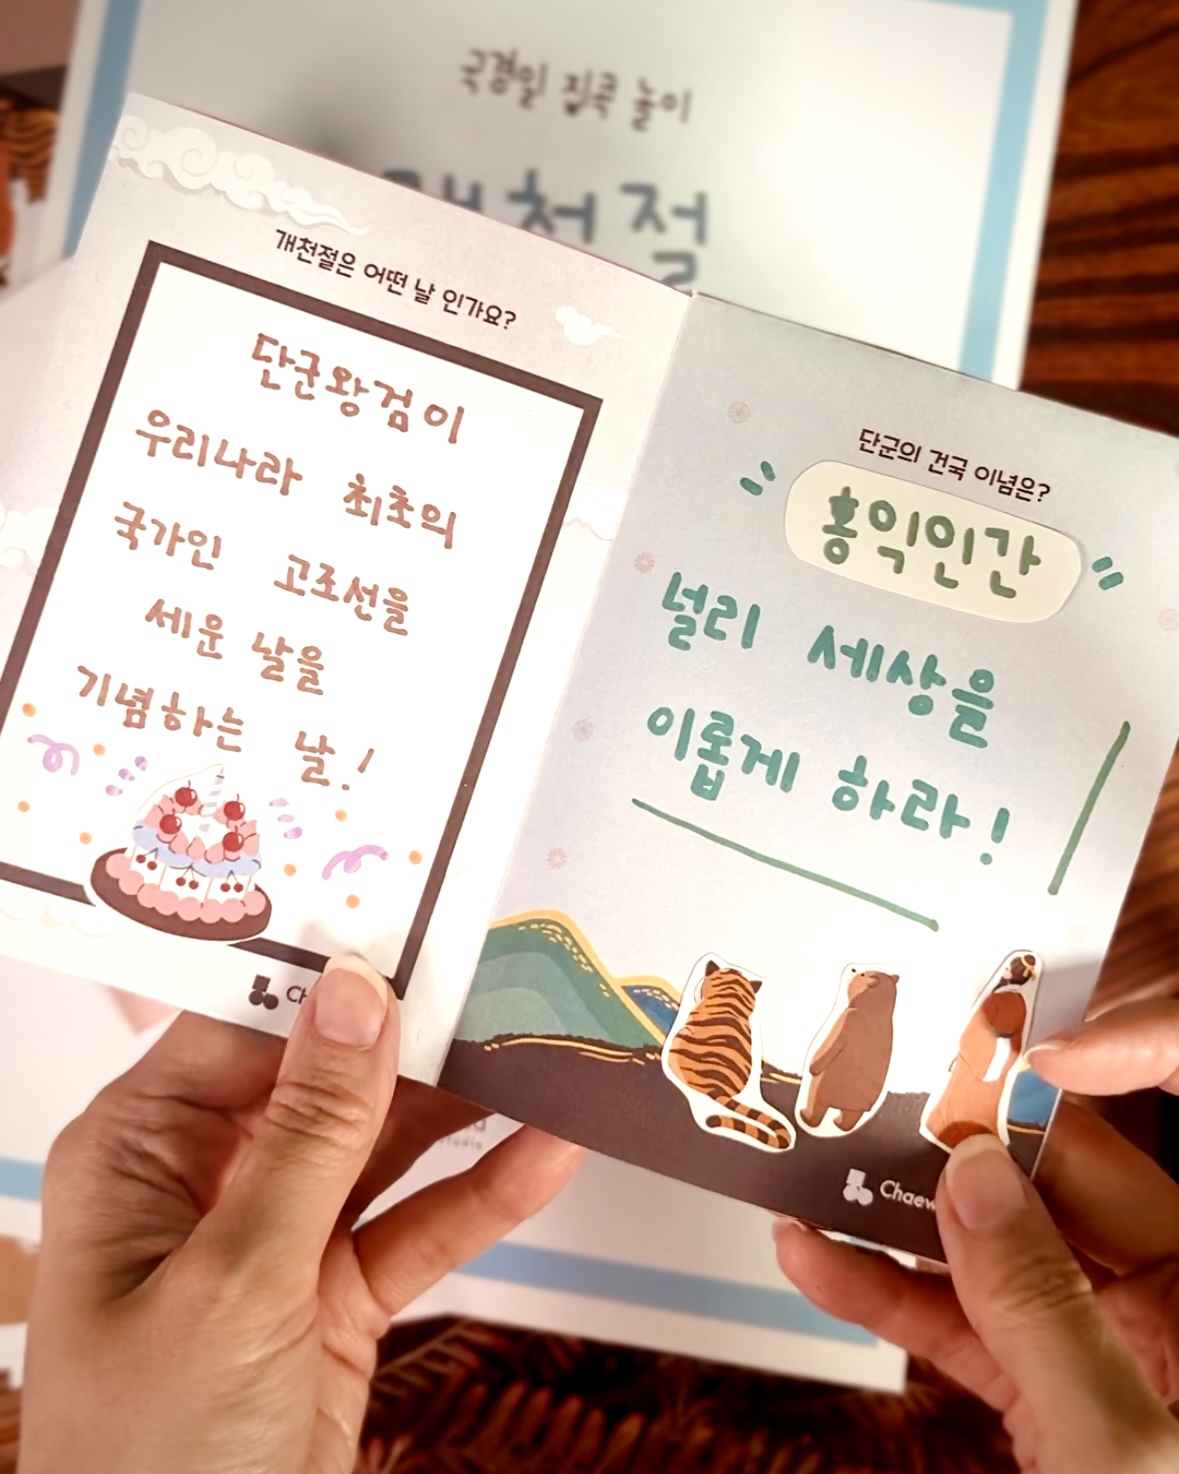 국경일 집콕 놀이
개천절
개천절은 어떤 날 인가요?
단군왕검이
우리나라 최초의
국가인 고조선을
세운 날을
기념하는 날!
단군의 건국 이념은?
홍익인간
널리 세상을
이롭게 하라!